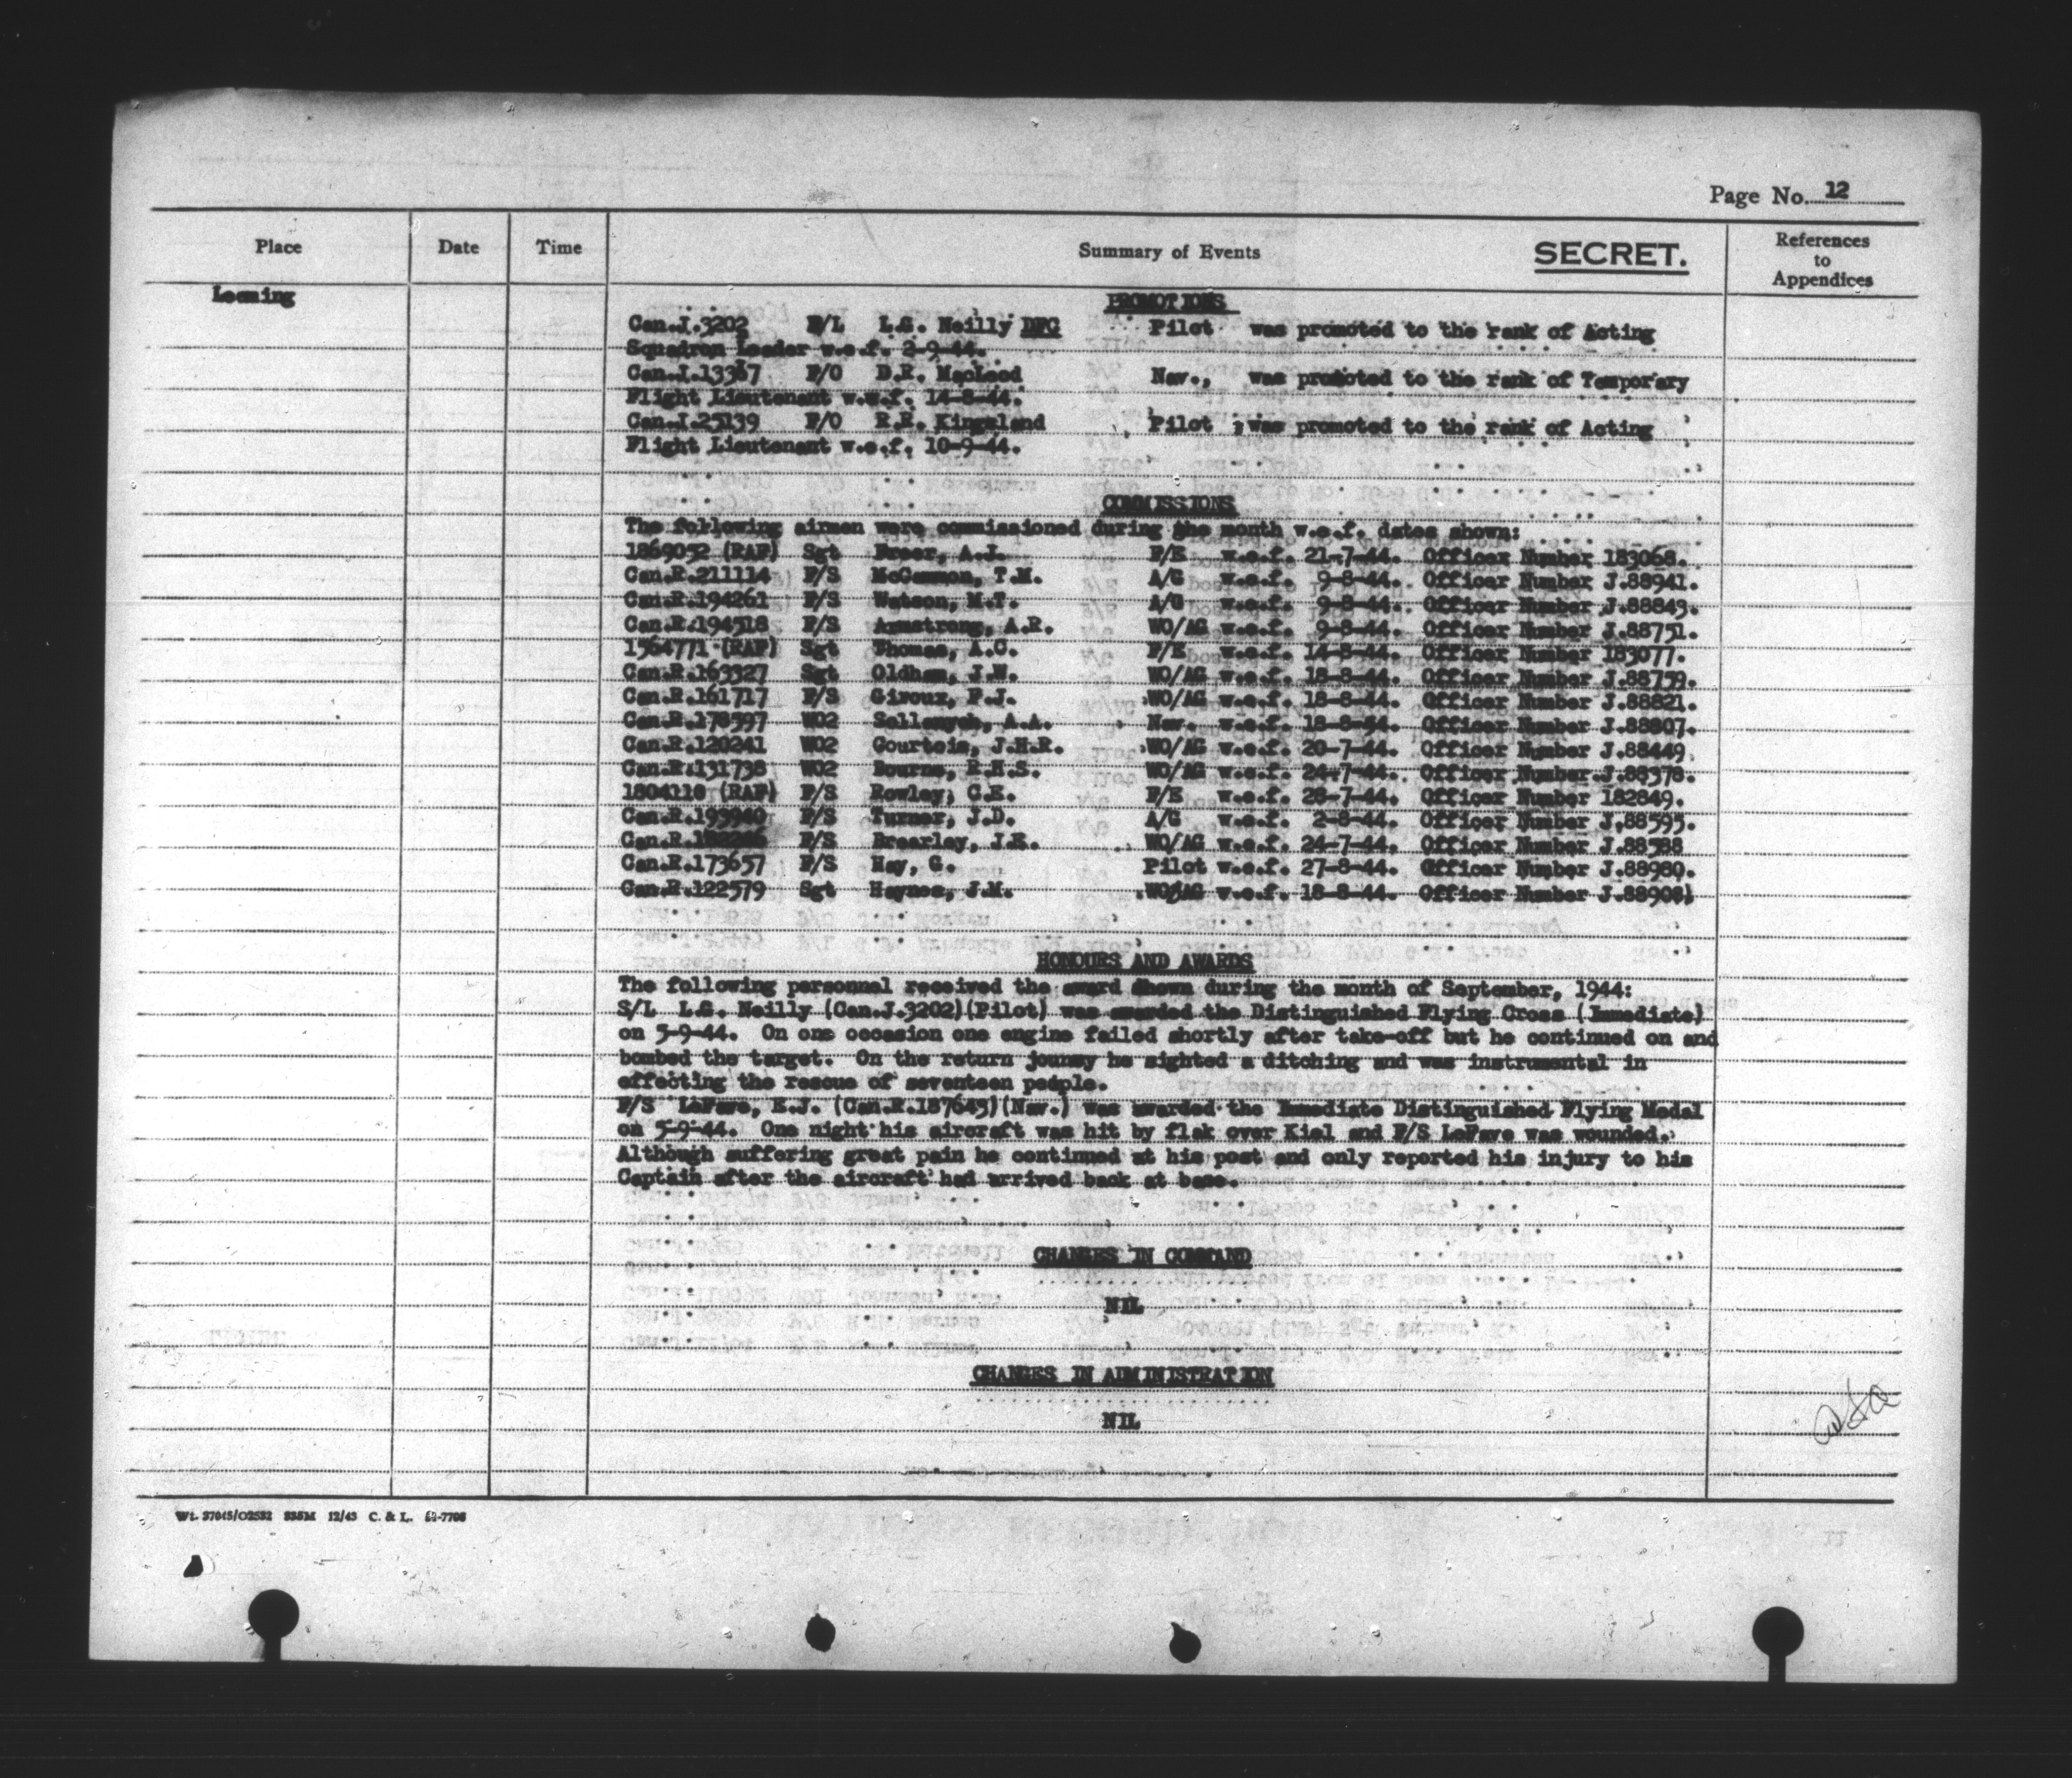 Page No. 12
Place Date Time Summary of Events SECRET. References to Appendices
Leeming
PROMOTIONS
Can.J.3202 F/L L.G. Neilly DFC Pilot was promoted to the rank of Acting
Squadron Leader w.e.f. 2-9-44.
Can.J.13367 F/O D.R. MacLeod Nav., was promoted to the rank of Temporary
Flight Lieutenant w.e.f. 14-8-44.
Can.J.25139 F/O R.R. Kingsland Pilot ; was promoted to the rank of Acting
Flight Lieutenant w.e.f. 10-9-44.
COMMISSIONS
The following airmen were commissioned during the month w.e.f. dates shown:
1869052 (RAF) Sgt Freer, A.J. F/E w.e.f. 21-7-44. Officer Number 183068.
Can.R.211114 F/S McCammon, T.M. A/G w.e.f. 9-8-44. Officer Number J.88941.
Can.R.194261 F/S Watson, M.T. A/G w.e.f. 9-8-44. Officer Number J.88843.
Can.R.194518 F/S Armstrong, A.R. WO/AG w.e.f. 9-8-44. Officer Number J.88751.
1564771 (RAF) Sgt Thomas, A.C. F/E w.e.f. 14-8-44. Officer Number 183077.
Can.R.163327 Sgt Oldham, J.W. WO/AG w.e.f. 18-8-44. Officer Number J.88759.
Can.R.161717 F/S Giroux, P.J. WO/AG w.e.f. 18-8-44. Officer Number J.88821.
Can.R.178597 WO2 A.A. Nav. w.e.f. 18-8-44. Officer Number J.88807.
Can.R.120241 WO2 Courtois, J.H.R. WO/AG w.e.f. 20-7-44. Officer Number J.88449
Can.R.131738 WO2 Bourne, R.H.S. WO/AG w.e.f. 24-7-44. Officer Number J.88378.
1804118 (RAF) F/S Rowley, C.E. F/E w.e.f. 28-7-44. Officer Number 182849.
Can.R.193940 F/S Turner, J.D. A/G w.e.f. 2-8-44. Officer Number J.88593.
F/S Brearley, J.E. WO/AG w.e.f. 24-7-44. Officer Number J.88588
Can.R.173657 F/S Hay, G. Pilot w.e.f. 27-8-44. Officer Number J.88980.
Can.R.122579 Sgt Haynes, J.M. WO/AG w.e.f. 18-8-44. Officer Number J.88908
HONOURS AND AWARDS
The following personnel received the award shown during the month of September, 1944:
S/L L.G. Neilly (Can.J.3202)(Pilot) was awarded the Distinguished Flying Cross (Immediate)
on 5-9-44. On one occasion one engine failed shortly after take-off but he continued on and
bombed the target. On the return jounsy he sighted a ditching and was instrumental in
effecting the rescue of seventeen people.
F/S LeFave, E.J. (Can.R.187643)(Nav.) was awarded the Immediate Distinguished Flying Medal
on 5-9-44. One night his aircraft was hit by flak over Kiel and F/S LeFave was wounded.
Although suffering great pain he continued at his post and only reported his injury to his
Captain after the aircraft had arrived back at base.
CHANGES IN COMMAND
NIL
CHANGES IN ADMINISTRATION
NIL
Wt. 37045/O2532 838M 12/43 C. & L. 51-7708